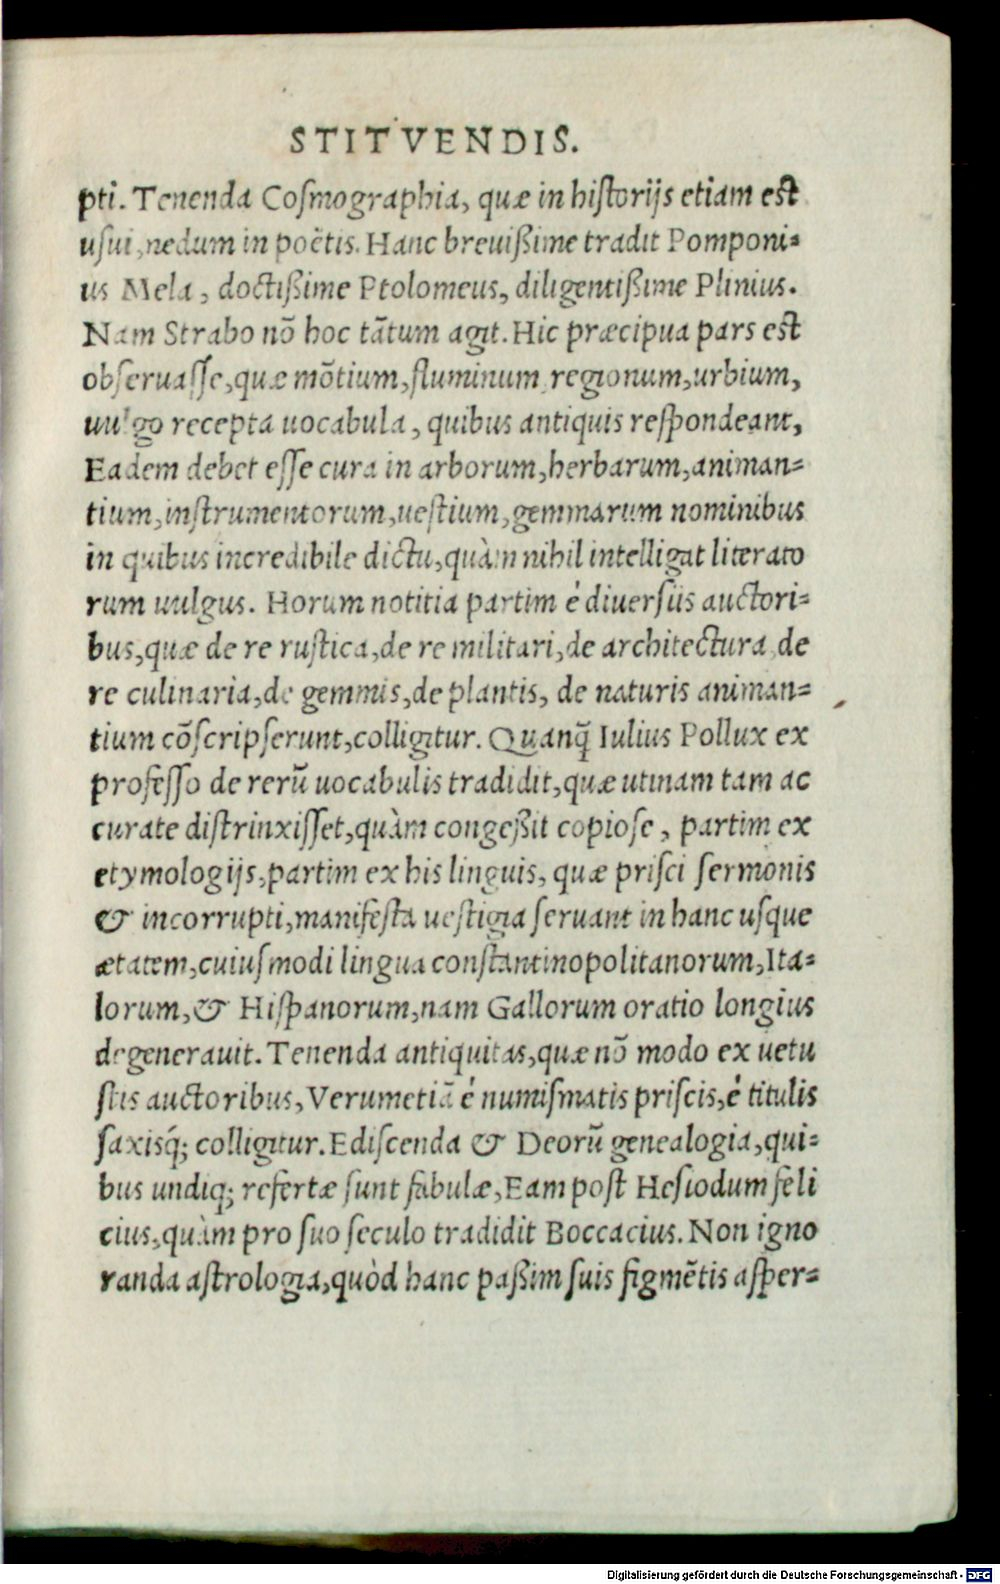 STITVENDIS.
pti. Tenenda Cosmographia, quæ in historijs etiam est
usui, nedum in poëtis. Hanc breuißime tradit Pomponi-
us Mela, doctißime Ptolomeus, diligentißime Plinius.
Nam Strabo nō hoc tātum agit. Hic præcipua pars est
obseruasse, quæ mōtium, fluminum regionum, urbium,
uulgo recepta uocabula, quibus antiquis respondeant,
Eadem debet esse cura in arborum, herbarum, animan-
tium, instrumentorum, uestium, gemmarum nominibus
in quibus incredibile dictu, quàm nihil intelligat literato
rum uulgus. Horum notitia partim é diuersiis auctori-
bus, quæ de re rustica, de re militari, de architectura, de
re culinaria, de gemmis, de plantis, de naturis animan-
tium cōscripserunt, colligitur. Quanq̄ Iulius Pollux ex
professo de rerū uocabulis tradidit, quæ utinam tam ac
curate distrinxisset, quàm congeßit copiose, partim ex
etymologijs, partim ex his linguis, quæ prisci sermonis
& incorrupti, manifesta uestigia seruant in hanc usque
ætatem, cuiusmodi lingua constantinopolitanorum, Ita-
lorum, & Hispanorum, nam Gallorum oratio longius
degenerauit. Tenenda antiquitas, quæ nō modo ex uetu
stis auctoribus, Verumetiā é numismatis priscis, é titulis
saxisq́; colligitur. Ediscenda & Deorū genealogia, qui-
bus undiq; refertæ sunt fabulæ, Eam post Hesiodum feli
cius, quàm pro suo seculo tradidit Boccacius. Non igno
randa astrologia, quòd hanc paßim suis figmētis asper-
Digitalisierung gefördert durch die Deutsche Forschungsgemeinschaft - DFG